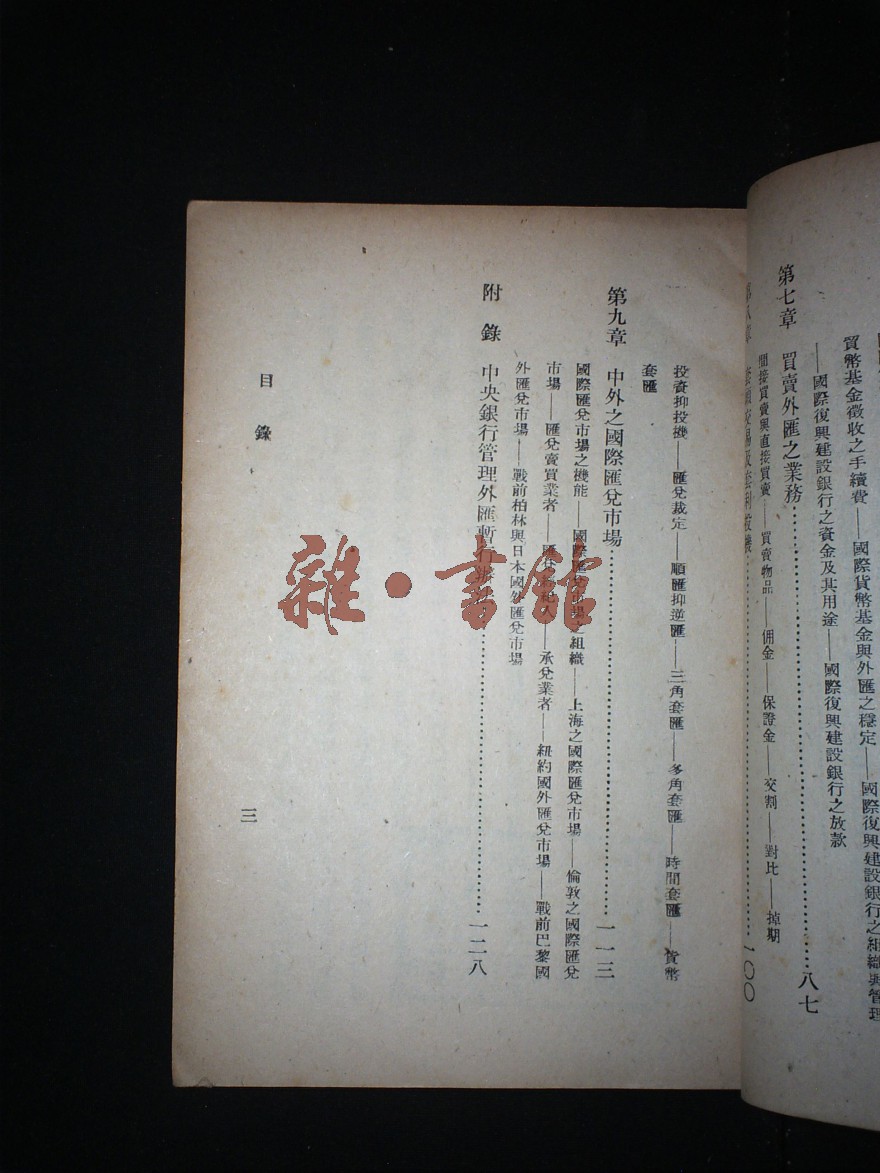 貨幣基金徵收之手續費——國際貨幣基金與外匯之穩定——國際復興建設銀行之組織與管理
——國際復興建設銀行之資金及其用途——國際復興建設銀行之放款
第七章 買賣外匯之業務……八七
間接買賣與直接買賣——買賣物品——佣金——保證金——交割——對比——掉期
第八章 套頭交易及套利投機……一〇〇
投資抑投機——匯兌裁定——順匯抑逆匯——三角套匯——多角套匯——時間套匯——貨幣
套匯
第九章 中外之國際匯兌市場……一一三
國際匯兌市場之機能——國際匯兌市場之組織——上海之國際匯兌市場——倫敦之國際匯兌
市場——匯兌賣買業者——匯兌經紀人——承兌業者——紐約國外匯兌市場——戰前巴黎國
外匯兌市場——戰前柏林與日本國外匯兌市場
附錄 中央銀行管理外匯暫行辦法……一二八
目錄
三
雜·書館